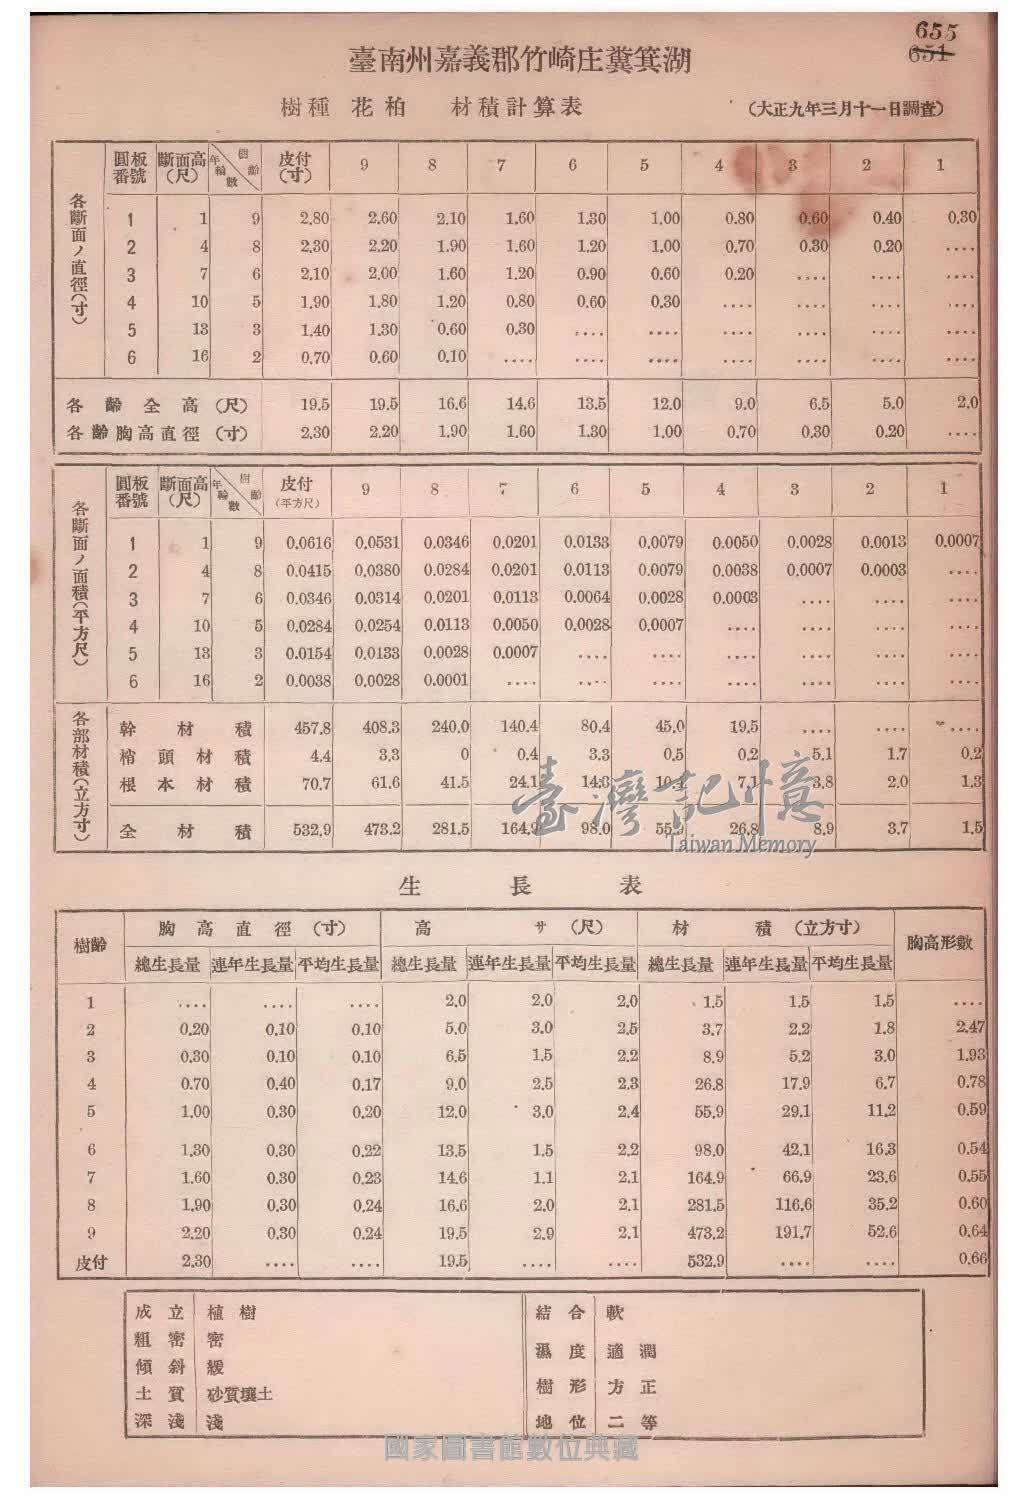 655
651
臺南州嘉義郡竹崎庄糞箕湖
樹種 花柏 材積計算表 (大正九年三月十一日調查)
各斷面ノ直徑(寸)
圓板番號 斷面高(尺) 樹齡 年輪數 皮付(寸) 9 8 7 6 5 4 3 2 1
1 1 9 2.80 2.60 2.10 1.60 1.30 1.00 0.80 0.60 0.40 0.30
2 4 8 2.30 2.20 1.90 1.60 1.20 1.00 0.70 0.30 0.20 ....
3 7 6 2.10 2.00 1.60 1.20 0.90 0.60 0.20 .... .... ....
4 10 5 1.90 1.80 1.20 0.80 0.60 0.30 .... .... .... ....
5 13 3 1.40 1.30 0.60 0.30 .... .... .... .... .... ....
6 16 2 0.70 0.60 0.10 .... .... .... .... .... .... ....
各齡全高(尺) 19.5 19.5 16.6 14.6 13.5 12.0 9.0 6.5 5.0 2.0
各齡胸高直徑(寸) 2.30 2.20 1.90 1.60 1.30 1.00 0.70 0.30 0.20 ....
各斷面ノ面積(平方尺)
圓板番號 斷面高(尺) 樹齡 年輪數 皮付(平方尺) 9 8 7 6 5 4 3 2 1
1 1 9 0.0616 0.0531 0.0346 0.0201 0.0133 0.0079 0.0050 0.0028 0.0013 0.0007
2 4 8 0.0415 0.0380 0.0284 0.0201 0.0113 0.0079 0.0038 0.0007 0.0003 ....
3 7 6 0.0346 0.0314 0.0201 0.0113 0.0064 0.0028 0.0003 .... .... ....
4 10 5 0.0284 0.0254 0.0113 0.0050 0.0028 0.0007 .... .... .... ....
5 13 3 0.0154 0.0133 0.0028 0.0007 .... .... .... .... .... ....
6 16 2 0.0038 0.0028 0.0001 .... .... .... .... .... .... ....
各部材積(立方寸)
幹材積 457.8 408.3 240.0 140.4 80.4 45.0 19.5 .... .... ....
梢頭材積 4.4 3.3 0 0.4 3.3 0.5 0.2 5.1 1.7 0.2
根本材積 70.7 61.6 41.5 24.1 14.3 10.4 7.1 3.8 2.0 1.3
全材積 532.9 473.2 281.5 164.9 98.0 55.9 26.8 8.9 3.7 1.5
臺灣記憶
Taiwan Memory
生長表
樹齡 胸高直徑(寸) 高サ(尺) 材積(立方寸) 胸高形數
總生長量 連年生長量 平均生長量 總生長量 連年生長量 平均生長量 總生長量 連年生長量 平均生長量
1 .... .... .... 2.0 2.0 2.0 1.5 1.5 1.5 ....
2 0.20 0.10 0.10 5.0 3.0 2.5 3.7 2.2 1.8 2.47
3 0.30 0.10 0.10 6.5 1.5 2.2 8.9 5.2 3.0 1.93
4 0.70 0.40 0.17 9.0 2.5 2.3 26.8 17.9 6.7 0.78
5 1.00 0.30 0.20 12.0 3.0 2.4 55.9 29.1 11.2 0.59
6 1.30 0.30 0.22 13.5 1.5 2.2 98.0 42.1 16.3 0.54
7 1.60 0.30 0.23 14.6 1.1 2.1 164.9 66.9 23.6 0.55
8 1.90 0.30 0.24 16.6 2.0 2.1 281.5 116.6 35.2 0.60
9 2.20 0.30 0.24 19.5 2.9 2.1 473.2 191.7 52.6 0.64
皮付 2.30 .... .... 19.5 .... .... 532.9 .... .... 0.66
成立 植樹
粗密 密
傾斜 緩
土質 砂質壤土
深淺 淺
結合 軟
濕度 適潤
樹形 方正
地位 二等
國家圖書館數位典藏